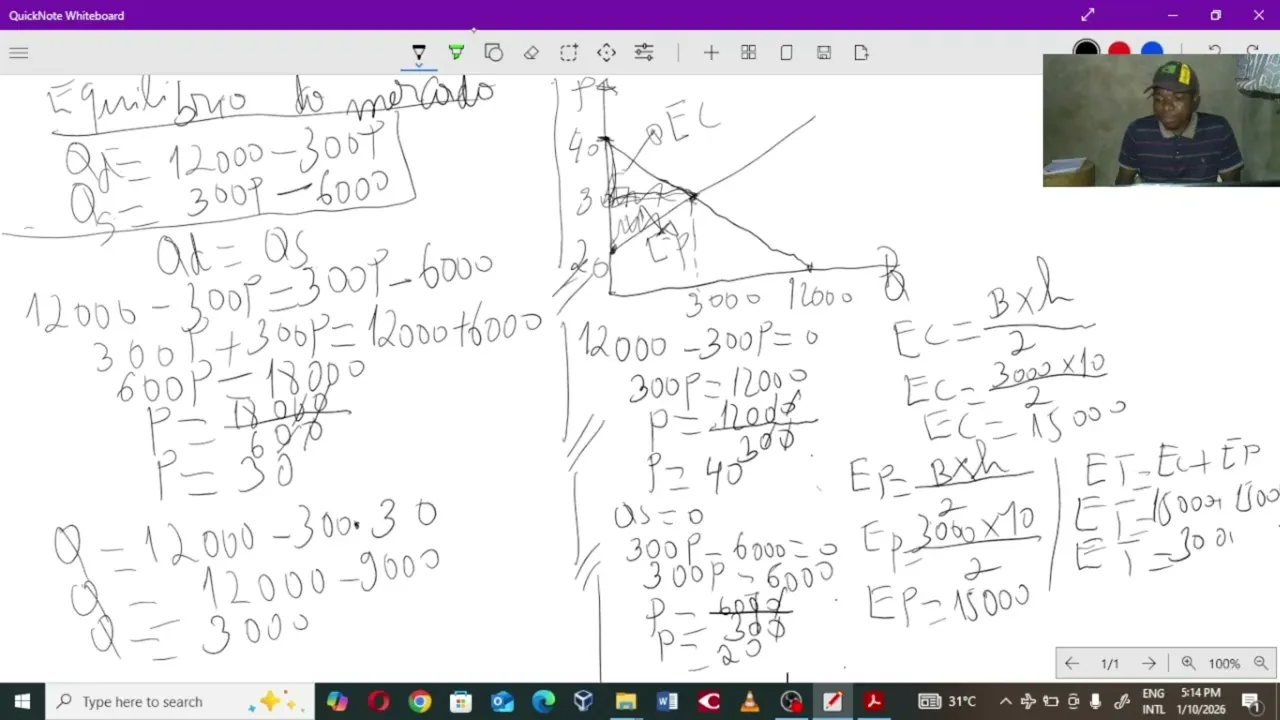 QuickNote Whiteboard
Equilibrio do mercado
Qd = 12000 - 300P
Qs = 300P - 6000
Qd = Qs
12000 - 300P = 300P - 6000
300P + 300P = 12000 + 6000
600P = 18000
P = 18000
600
P = 30
Q = 12000 - 300 . 30
Q = 12000 - 9000
Q = 3000
P
EC
40
30
EP
20
3000 12000
Q
12000 - 300P = 0
300P = 12000
P = 12000
300
P = 40
Qs = 0
300P - 6000 = 0
300P = 6000
P = 6000
300
P = 20
EC = B x h
2
EC = 3000 x 10
2
EC = 15000
EP = B x h
2
EP = 3000 x 10
2
EP = 15000
ET = EC + EP
ET = 15000 + 1500
ET = 300
1/1
100%
Type here to search
31°C
ENG
INTL
5:14 PM
1/10/2026